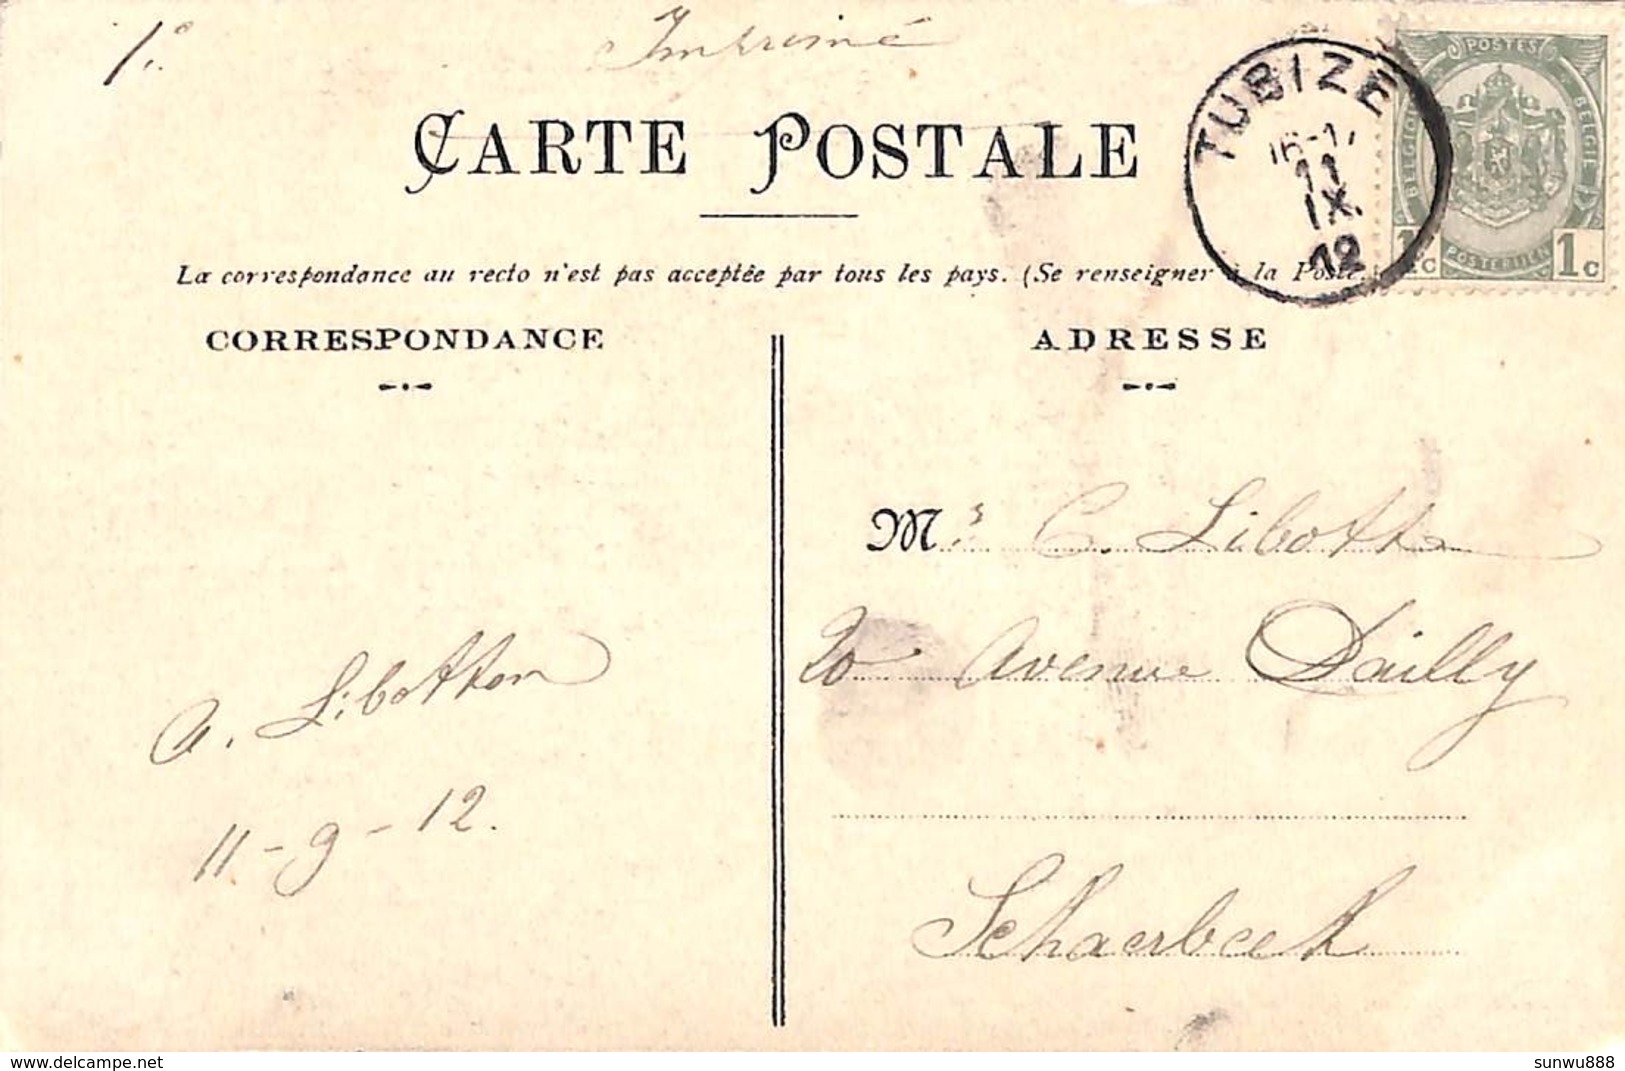 1°.
Imprimé
CARTE POSTALE
TUBIZE
11
IX
12
POSTES
BELGIQUE
BELGIË
POSTERIJEN
1c
1c
La correspondance au recto n'est pas acceptée par tous les pays. (Se renseigner à la Poste.)
CORRESPONDANCE
ADRESSE
Mrs C. Libotte
20 Avenue Dailly
Schaerbeek
A. Libotton
11-9-12.
delcampe.net
sunwu888